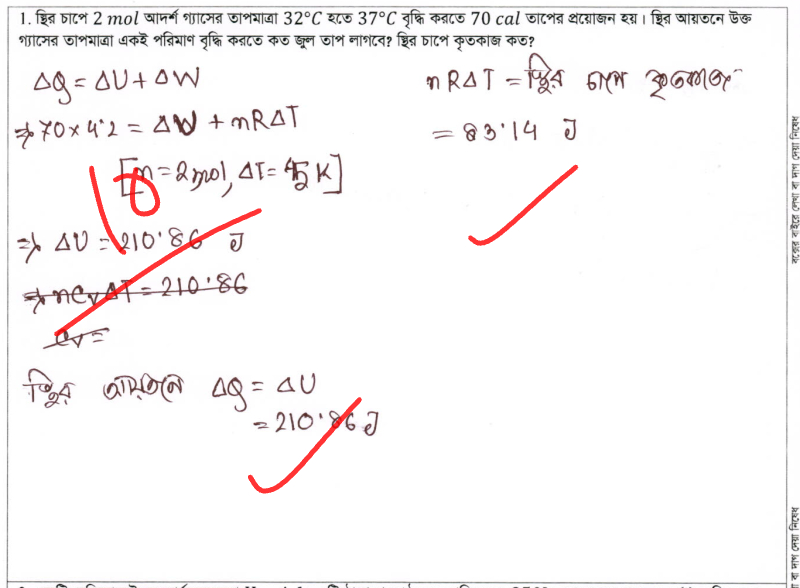 1. স্থির চাপে 2 mol আদর্শ গ্যাসের তাপমাত্রা 32°C হতে 37°C বৃদ্ধি করতে 70 cal তাপের প্রয়োজন হয়। স্থির আয়তনে উক্ত
গ্যাসের তাপমাত্রা একই পরিমাণ বৃদ্ধি করতে কত জুল তাপ লাগবে? স্থির চাপে কৃতকাজ কত?
ΔQ = ΔU + ΔW
⇒ 70 × 4.2 = ΔU + nRΔT
[n = 2 mol, ΔT = 5 K]
10
⇒ ΔU = 210.86 J
⇒ nCvΔT = 210.86
Cv =
স্থির আয়তনে ΔQ = ΔU
= 210.86 J
nRΔT = স্থির চাপে কৃতকাজ
= 83.14 J
বক্সের বাইরে লেখা বা দাগ দেয়া নিষেধ
া দাগ দেয়া নিষেধ